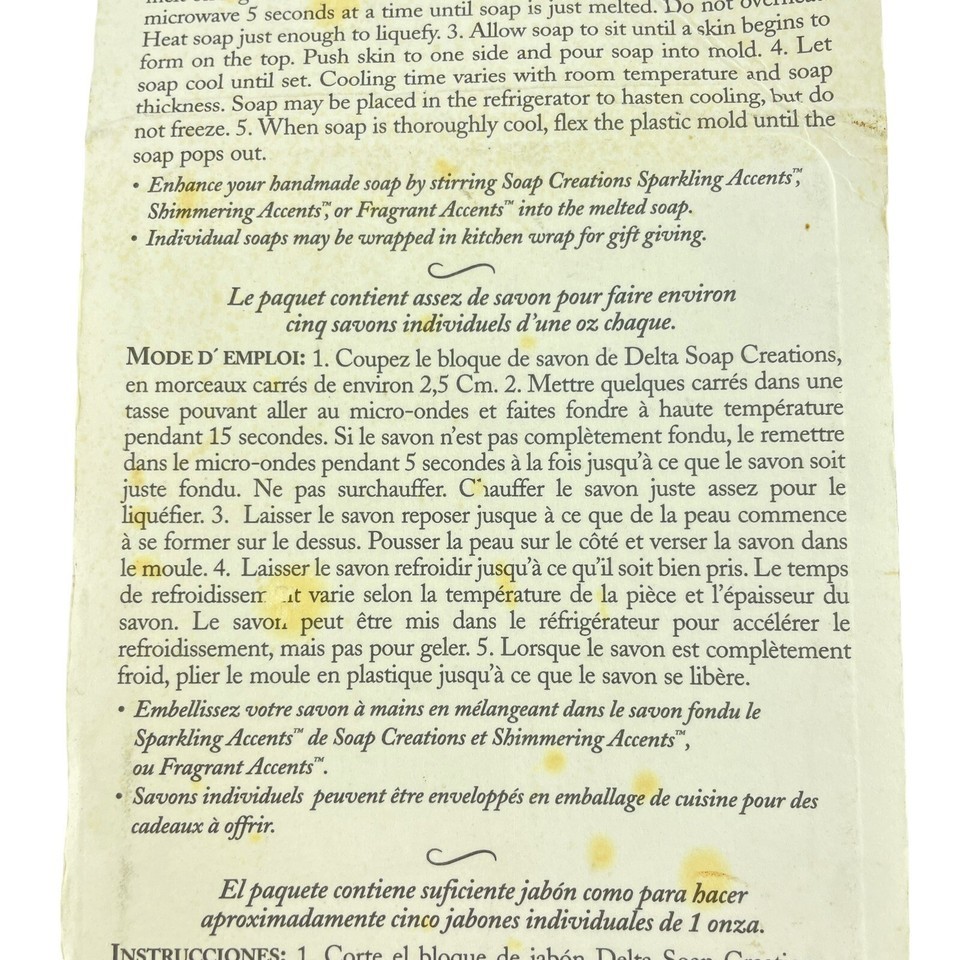 microwave 5 seconds at a time until soap is just melted. Do not overheat.
Heat soap just enough to liquefy. 3. Allow soap to sit until a skin begins to
form on the top. Push skin to one side and pour soap into mold. 4. Let
soap cool until set. Cooling time varies with room temperature and soap
thickness. Soap may be placed in the refrigerator to hasten cooling, but do
not freeze. 5. When soap is thoroughly cool, flex the plastic mold until the
soap pops out.
• Enhance your handmade soap by stirring Soap Creations Sparkling Accents™,
Shimmering Accents™, or Fragrant Accents™ into the melted soap.
• Individual soaps may be wrapped in kitchen wrap for gift giving.
Le paquet contient assez de savon pour faire environ
cinq savons individuels d'une oz chaque.
MODE D´ EMPLOI: 1. Coupez le bloque de savon de Delta Soap Creations,
en morceaux carrés de environ 2,5 Cm. 2. Mettre quelques carrés dans une
tasse pouvant aller au micro-ondes et faites fondre à haute température
pendant 15 secondes. Si le savon n'est pas complètement fondu, le remettre
dans le micro-ondes pendant 5 secondes à la fois jusqu'à ce que le savon soit
juste fondu. Ne pas surchauffer. Chauffer le savon juste assez pour le
liquéfier. 3. Laisser le savon reposer jusque à ce que de la peau commence
à se former sur le dessus. Pousser la peau sur le côté et verser la savon dans
le moule. 4. Laisser le savon refroidir jusqu'à ce qu'il soit bien pris. Le temps
de refroidissement varie selon la température de la pièce et l'épaisseur du
savon. Le savon peut être mis dans le réfrigérateur pour accélérer le
refroidissement, mais pas pour geler. 5. Lorsque le savon est complètement
froid, plier le moule en plastique jusqu'à ce que le savon se libère.
• Embellissez votre savon à mains en mélangeant dans le savon fondu le
Sparkling Accents™ de Soap Creations et Shimmering Accents™,
ou Fragrant Accents™.
• Savons individuels peuvent être enveloppés en emballage de cuisine pour des
cadeaux à offrir.
El paquete contiene suficiente jabón como para hacer
aproximadamente cinco jabones individuales de 1 onza.
INSTRUCCIONES: 1. Corte el bloque de jabón Delta Soap